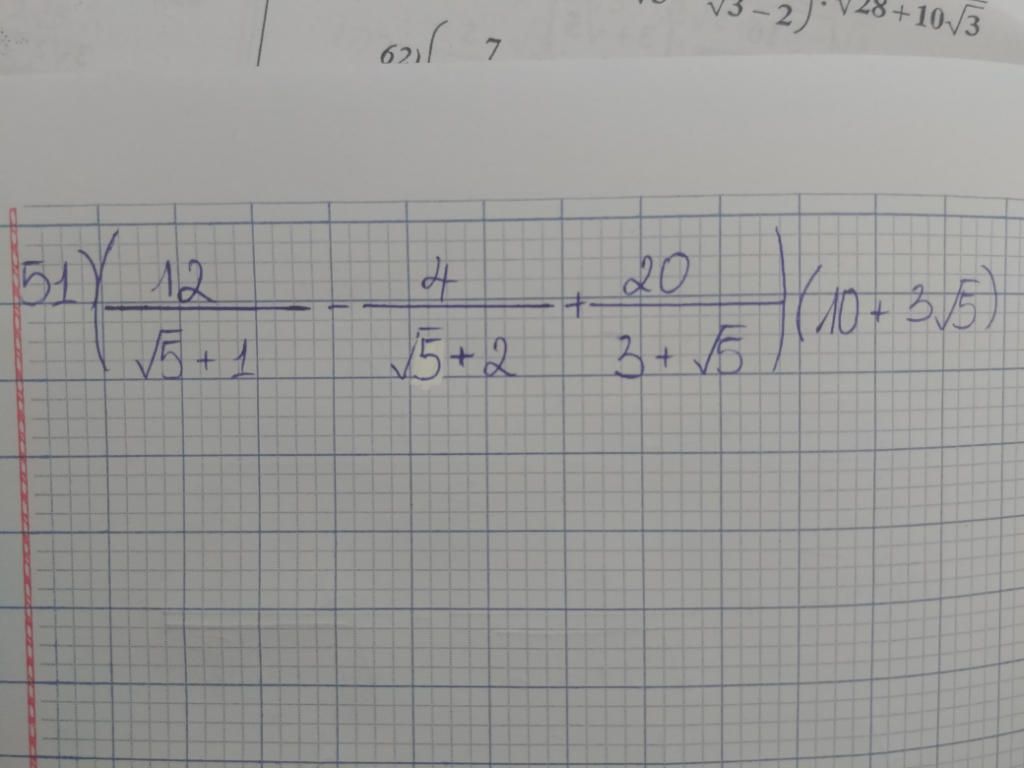 √3 – 2) · √28 + 10√3
62) ( 7
51) (12/(√5 + 1) - 4/(√5 + 2) + 20/(3 + √5)) (10 + 3√5)